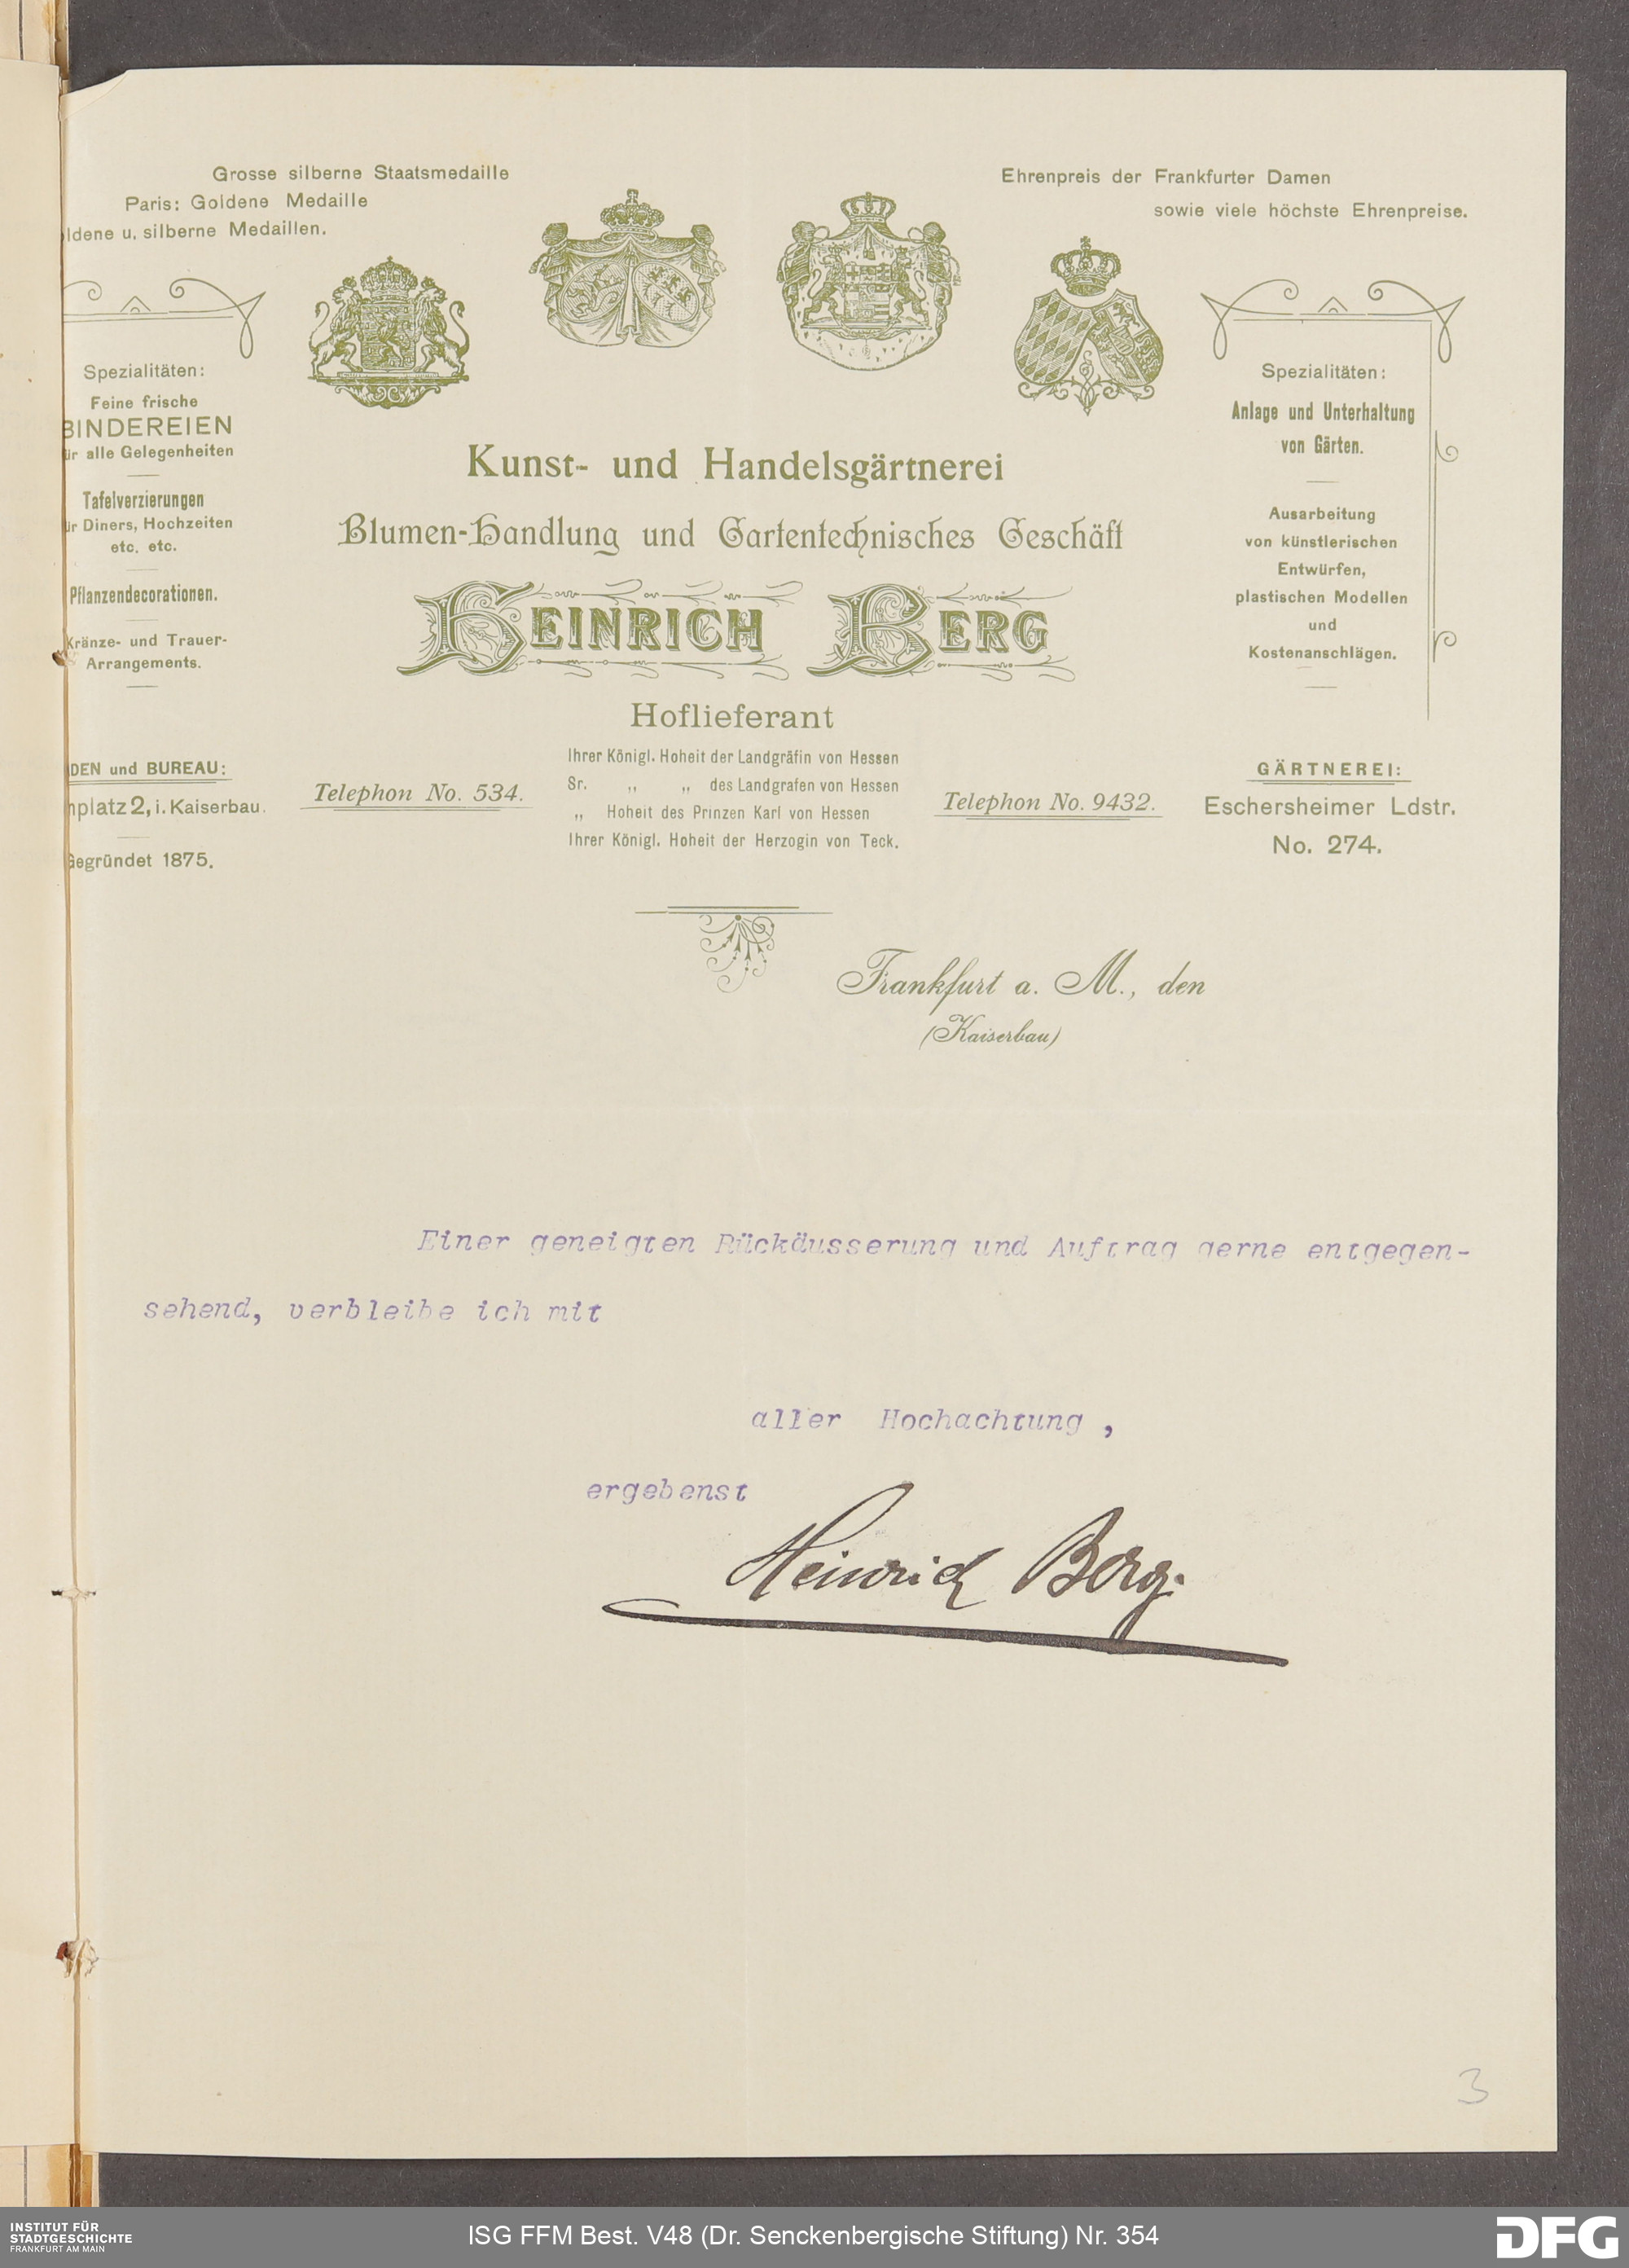 Grosse silberne Staatsmedaille
Paris: Goldene Medaille
ldene u. silberne Medaillen.
Ehrenpreis der Frankfurter Damen
sowie viele höchste Ehrenpreise.
Spezialitäten:
Feine frische
BINDEREIEN
ür alle Gelegenheiten
Tafelverzierungen
ür Diners, Hochzeiten
etc. etc.
Pflanzendecorationen.
Kränze- und Trauer-
Arrangements.
DEN und BUREAU:
nplatz 2, i. Kaiserbau.
Gegründet 1875.
Kunst- und Handelsgärtnerei
Blumen-Handlung und Gartentechnisches Geschäft
HEINRICH BERG
Hoflieferant
Ihrer Königl. Hoheit der Landgräfin von Hessen
Sr. „ „ des Landgrafen von Hessen
„ Hoheit des Prinzen Karl von Hessen
Ihrer Königl. Hoheit der Herzogin von Teck.
Telephon No. 534.
Telephon No. 9432.
Spezialitäten:
Anlage und Unterhaltung
von Gärten.
Ausarbeitung
von künstlerischen
Entwürfen,
plastischen Modellen
und
Kostenanschlägen.
GÄRTNEREI:
Eschersheimer Ldstr.
No. 274.
Frankfurt a. M., den
(Kaiserbau)
Einer geneigten Rückäusserung und Auftrag gerne entgegen-
sehend, verbleibe ich mit
aller Hochachtung ,
ergebenst
Heinrich Berg.
3
INSTITUT FÜR
STADTGESCHICHTE
FRANKFURT AM MAIN
ISG FFM Best. V48 (Dr. Senckenbergische Stiftung) Nr. 354
DFG